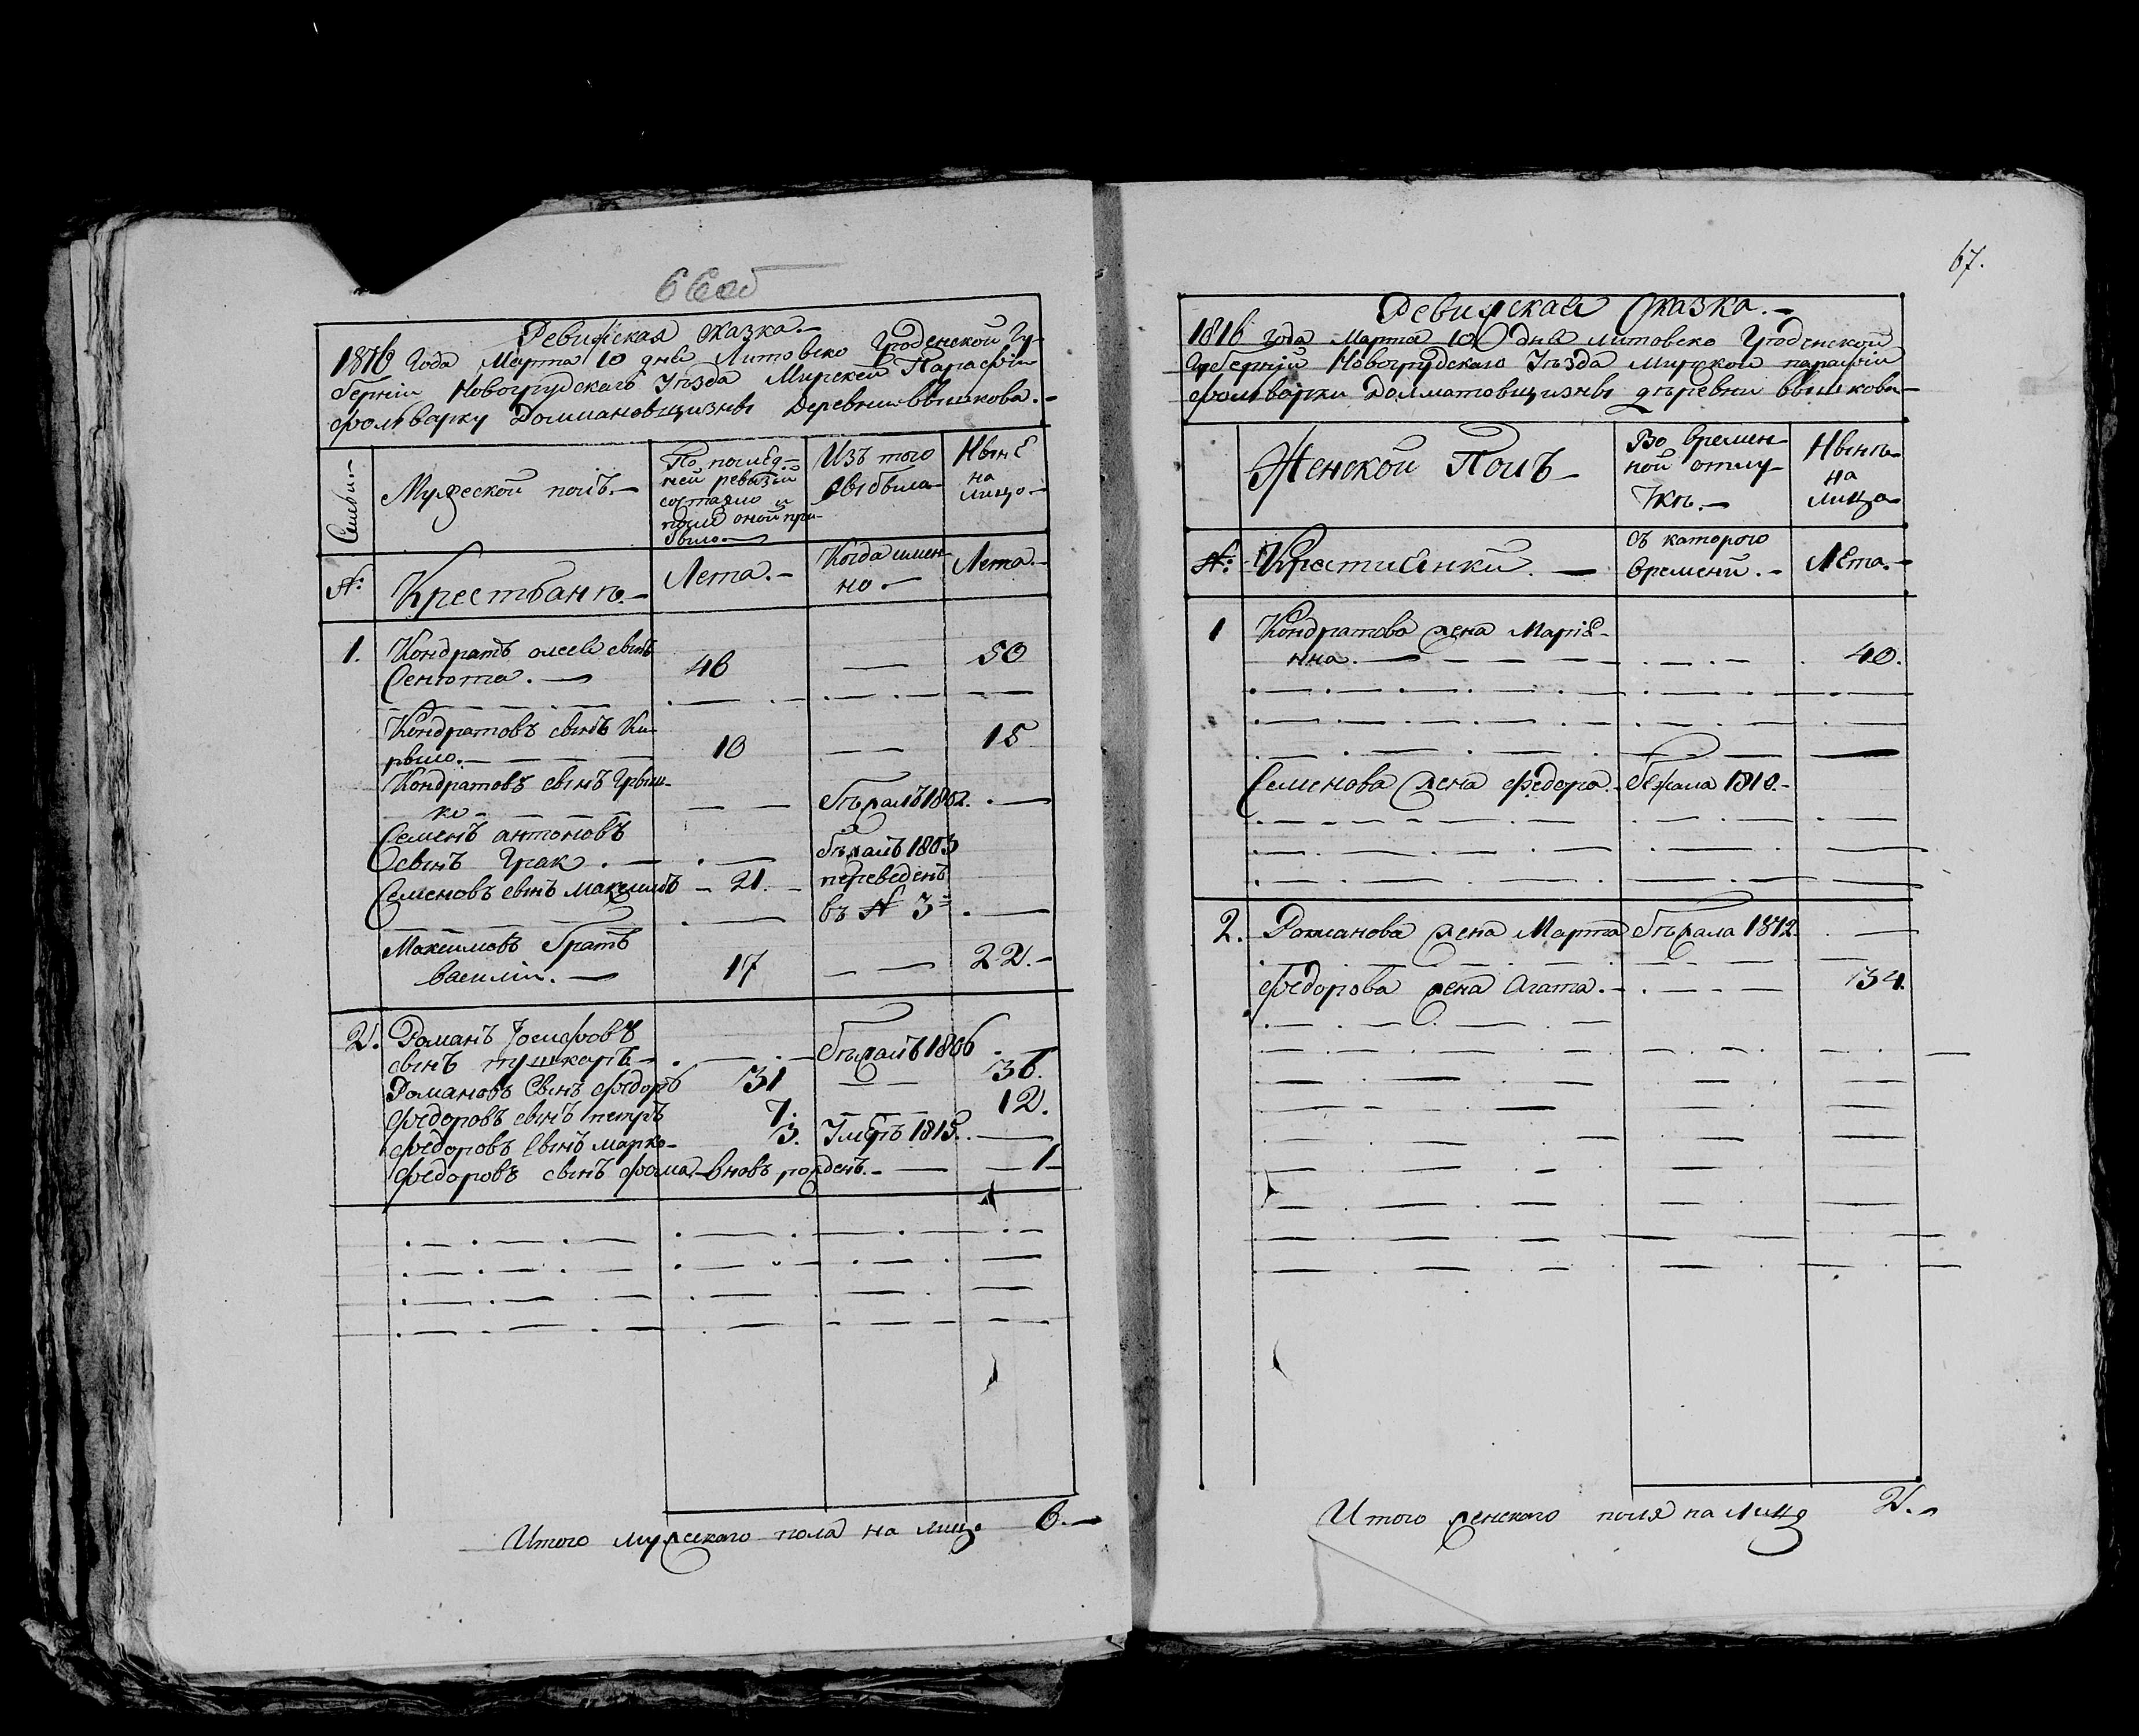 66об
Ревизская сказка.
1816 Года Марта 10 дня Литовско Гроденской Гу-
берніи Новогрудскаго Уѣзда Мирской Парафіи
фольварку Долматовщизны Деревни Вышкова.
Семьи
Мужеской полъ.
По послѣд-
ней ревизіи
состояло и
после оной при-
было.
Изъ того
выбыла
Нынѣ
на
лицо
№:
Крестьанѣ.
Лета.
Когда имен-
но.
Лета.
1.
Кондратъ сынъ
Сенюта.
46
50
Кондратовъ сынъ Ки-
рыло.
10
15
Кондратовъ сынъ Грыш-
ко
бѣжалъ 1802.
Семенъ антоновъ
сынъ Грак.
бѣжалъ 1803
Семеновъ сынъ максимъ 21.
переведенъ
въ № 3
Максимовъ братъ
василій.
17
22.
2.
Романъ Іосифовъ
сынъ тушкаръ
бѣжалъ 1806
Романовъ Сынъ федоръ 31 36.
федоровъ сынъ петръ 7. 12.
федоровъ Сынъ марко 3. Умѣръ 1815.
федоровъ сынъ фома вновъ рожденъ. 1
Итого мужскаго пола на лицо 6.
67.
Ревизская Сказка.
1816 Года Марта 10 дня литовско Гроденской
Губерній Новогрудскаго Уѣзда Мирской парафіи
фольварки Долматовщизны дѣревни вышкова
Женской Полъ
Во времен-
ной отлу-
чкѣ.
Нынѣ
на
лицо
№:
Крестиянки.
Съ каторого
времени.
Лѣта.
1
Кондратова жена Маріа-
нна.
40.
Семенова жена федора. бежала 1810.
2.
Романова жена Марта бѣжала 1812.
федорова жена Агата. 34.
Итого женскаго поля на лицо 2.